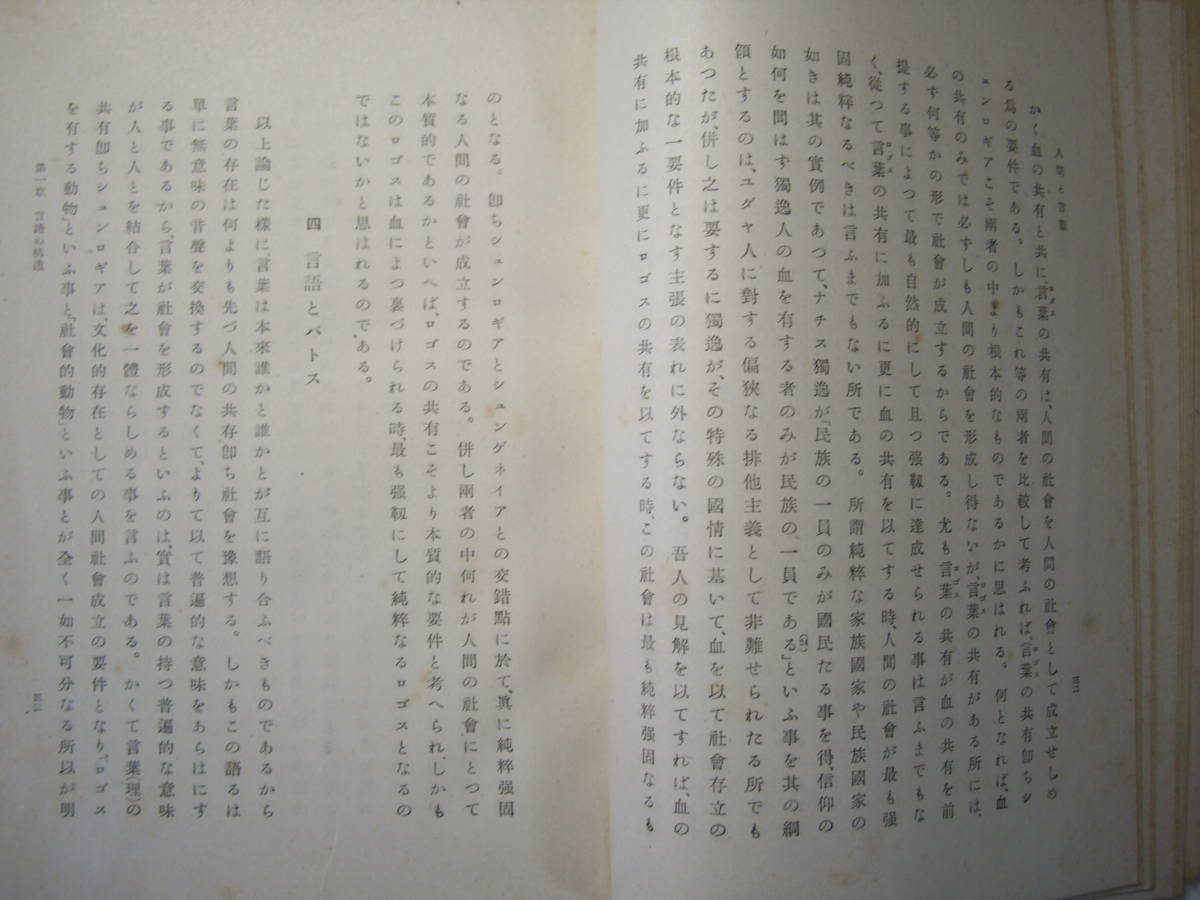 人間と言葉
三二
かく血の共有と共に、言葉の共有は、人間の社會を人間の社會として成立せしめ
る爲の要件である。しかもこれ等の兩者を比較して考ふれば、言葉の共有卽ちシ
ュンロギアこそ兩者の中より根本的なものであるかに思はれる。何となれば、血
の共有のみでは必ずしも人間の社會を形成し得ないが、言葉の共有がある所には、
必ず何等かの形で社會が成立するからである。尤も言葉の共有が血の共有を前
提する事によつて最も自然的にして且つ强靱に達成せられる事は言ふまでもな
く、從つて言葉の共有に加ふるに更に血の共有を以てする時、人間の社會が最も强
固純粹なるべきは言ふまでもない所である。所謂純粹な家族國家や民族國家の
如きは其の實例であつて、ナチス獨逸が「民族の一員のみが國民たる事を得、信仰の
如何を問はず獨逸人の血を有する者のみが民族の一員である」といふ事を其の綱
領とするのは、ユダヤ人に對する偏狹なる排他主義として非難せられたる所でも
あつたが、併し之は要するに獨逸が、その特殊の國情に基いて、血を以て社會存立の
根本的な一要件となす主張の表れに外ならない。吾人の見解を以てすれば、血の
共有に加ふるに更にロゴスの共有を以てする時、この社會は最も純粹强固なるも
のとなる。卽ちシュンロギアとシュンゲネイアとの交錯點に於て、眞に純粹强固
なる人間の社會が成立するのである。併し兩者の中何れが人間の社會にとつて
本質的であるかといへば、ロゴスの共有こそより本質的な要件と考へられ、しかも
このロゴスは血によつて裏づけられる時、最も强靱にして純粹なるロゴスとなるの
ではないかと思はれるのである。
四 言語とパトス
以上論じた樣に、言葉は本來誰かと誰かとが互に語り合ふべきものであるから
言葉の存在は何よりも先づ人間の共存卽ち社會を豫想する。しかもこの語るは
單に無意味の音聲を交換するのでなくて、よりて以て普遍的な意味をあらはにす
る事であるから、言葉が社會を形成するといふのは、實は言葉の持つ普遍的な意味
が人と人とを結合して之を一體ならしめる事を言ふのである。かくて言葉(理)の
共有卽ちシュンロギアは、文化的存在としての人間社會成立の要件となり、「ロゴス
を有する動物」といふ事と「社會的動物」といふ事とが全く一如不可分なる所以が明
第一章 言語の構造